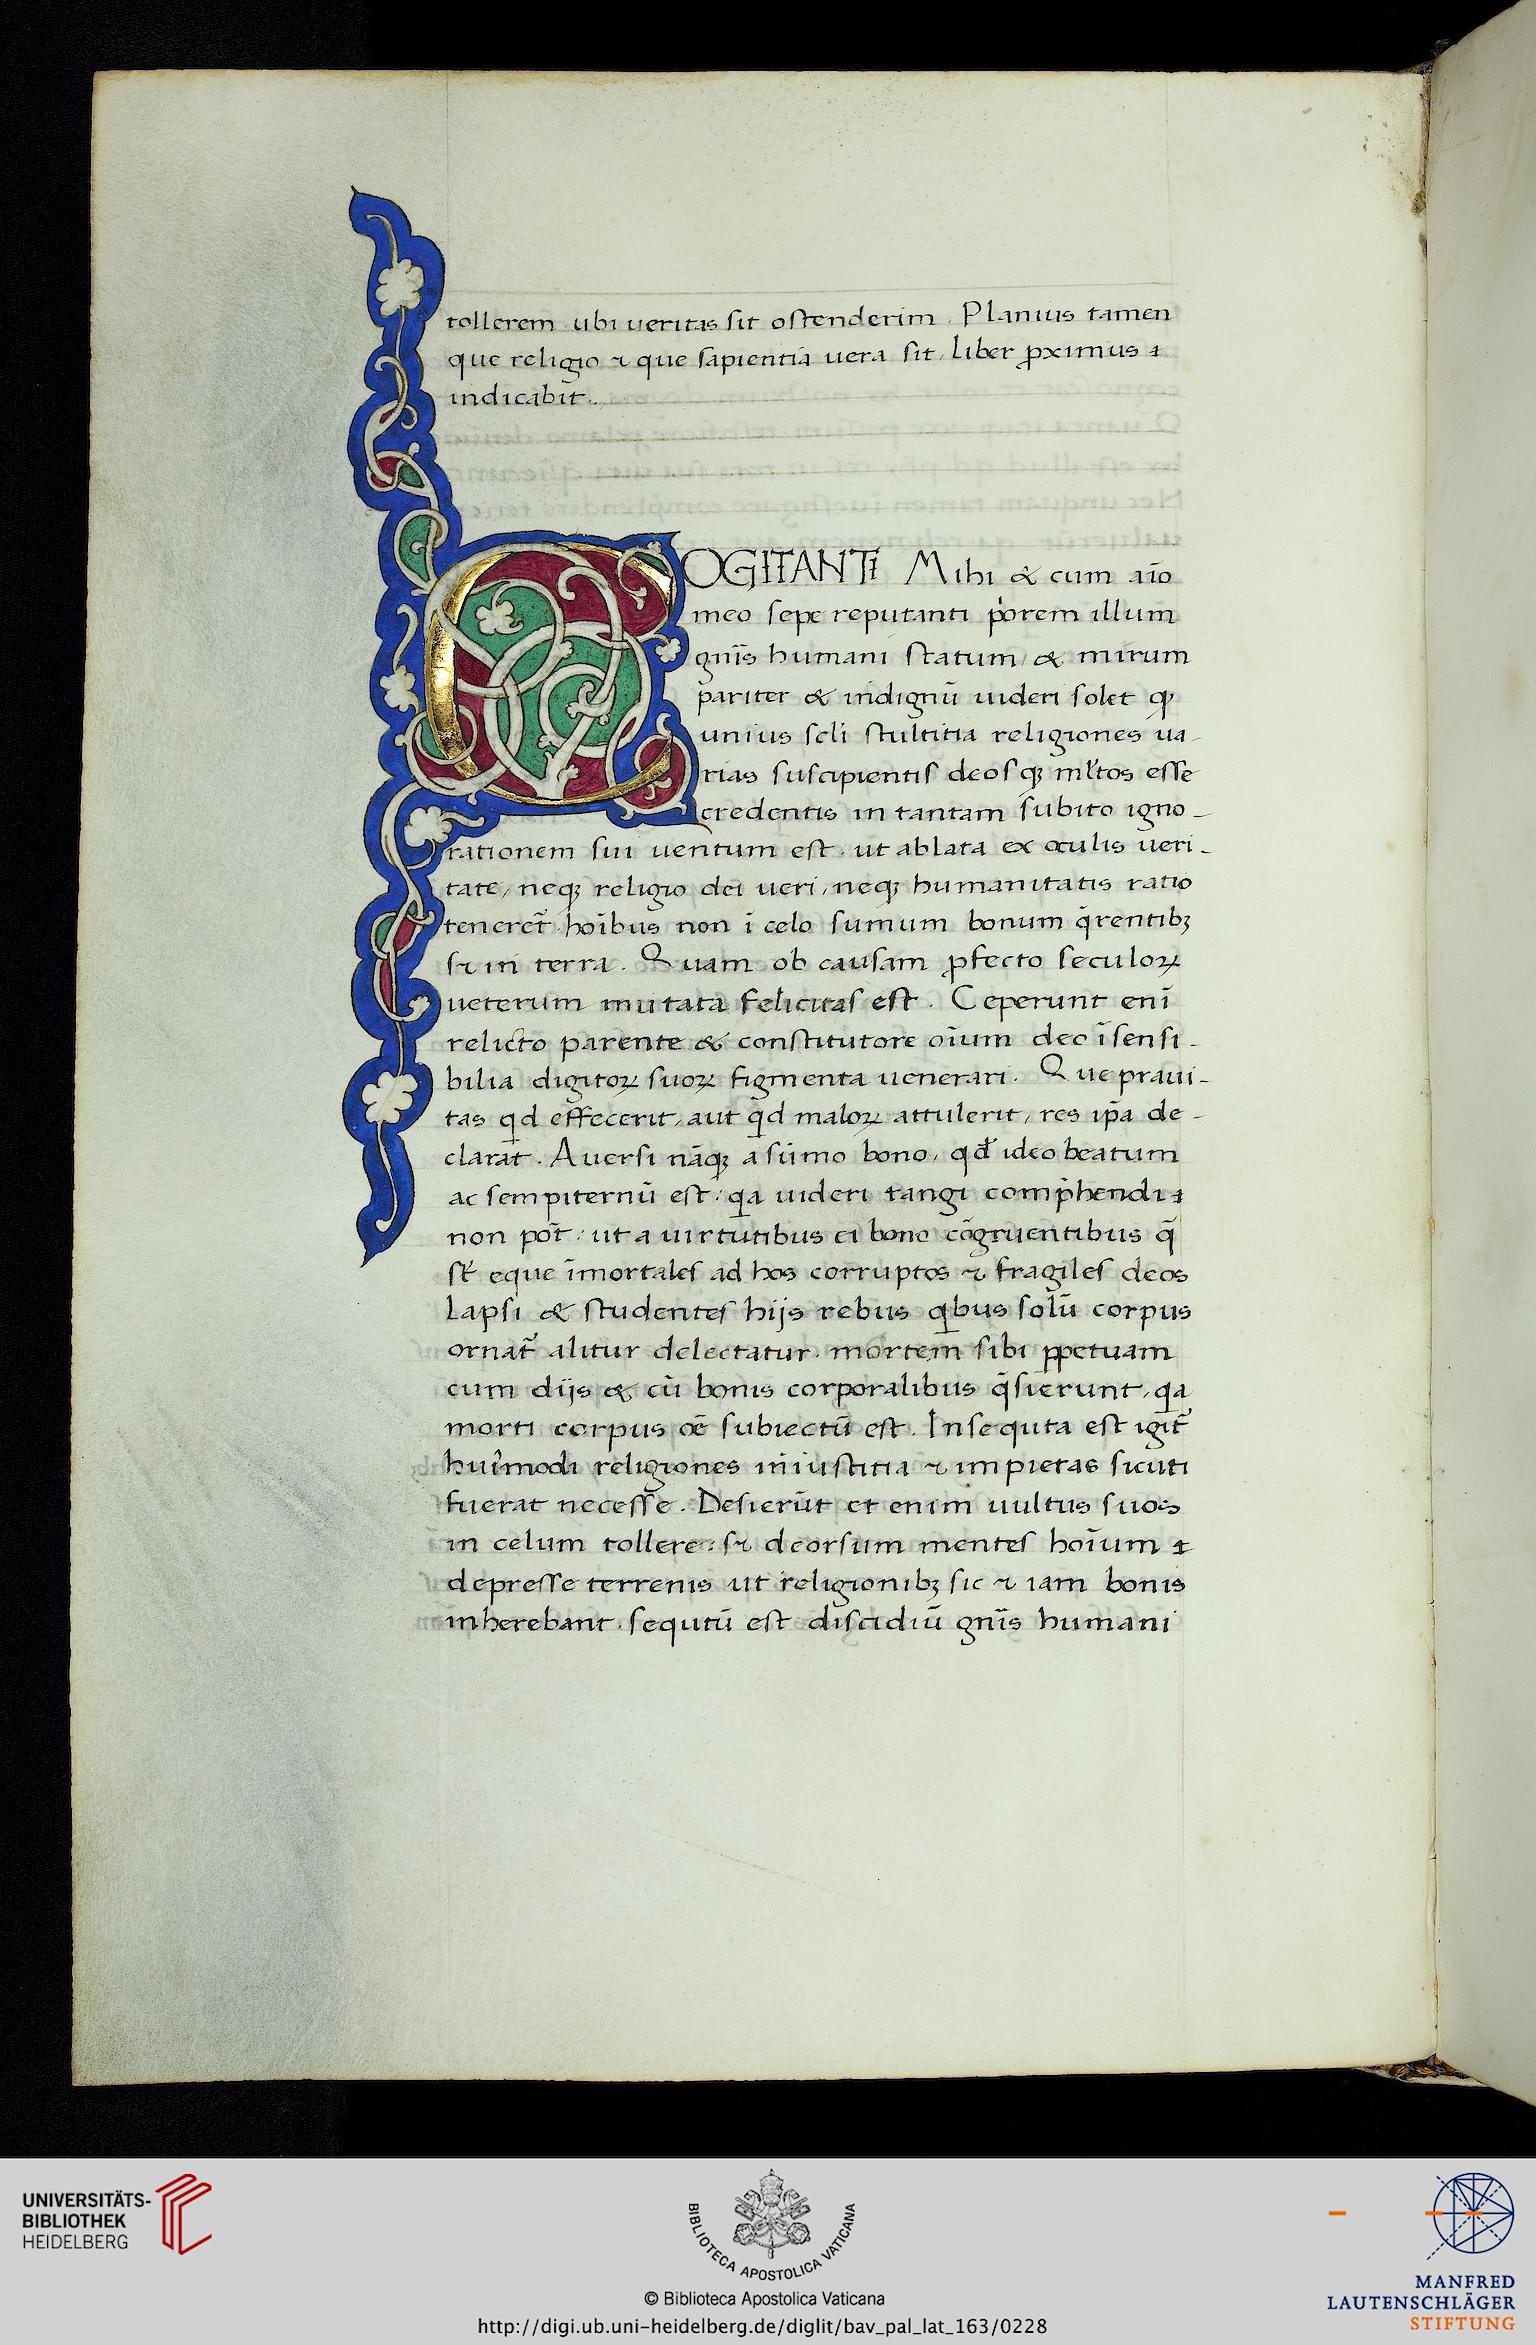 tollerem ubi ueritas sit ostenderim. Planius tamen
que religio ⁊ que sapientia uera sit, liber ꝓximus
indicabit.
COGITANTI Mihi & cum aīo
meo sepe reputanti p̓orem illum
gn̄is humani statum, & mirum
pariter & indignū uideri solet ꝙ
unius scl̓i stultitia religiones ua-
rias suscipientis deosqꝫ ml̓tos esse
credentis in tantam subito igno-
rationem sui uentum est. ut ablata ex oculis ueri-
tate, neqꝫ religio dei ueri, neqꝫ humanitatis ratio
teneret᷑. hoībus non ī celo sumum bonum q̓rentibꝫ
sꝫ in terra. Quam ob causam ꝓfecto seculoꝝ
ueterum mutata felicitas est. Ceperunt enī
relicto parente & constitutore oīum deo īsensi-
bilia digitoꝝ suoꝝ figmenta uenerari. Que praui-
tas qd effecerit, aut qd maloꝝ attulerit, res ip̄a de-
clarat. Auersi nāqꝫ a sūmo bono, qđ ideo beatum
ac sempiternū est: qa uideri tangi comp̓hendi
non pōt: ut a uirtutibus ei bono cōgruentibus q̄
st̄ eque īmortales ad hos corruptos ⁊ fragiles deos
Lapsi & studentes hijs rebus qbus solū corpus
ornat᷑ alitur delectatur. mortem sibi ꝑpetuam
cum dijs & cū bonis corporalibus q̓sierunt, qa
morti corpus oē subiectū est. Insequta est igit᷑
hui̓modi religiones iniustitia ⁊ impietas sicuti
fuerat necesse. Desierūt et enim uultus suos
in celum tollere: sꝫ deorsum mentes hoīum
depresse terrenis ut religionibꝫ sic ⁊ iam bonis
inherebant. sequtū est discidiū gn̄is humani
UNIVERSITÄTS-
BIBLIOTHEK
HEIDELBERG
BIBLIOTECA APOSTOLICA VATICANA
© Biblioteca Apostolica Vaticana
http://digi.ub.uni-heidelberg.de/diglit/bav_pal_lat_163/0228
MANFRED
LAUTENSCHLÄGER
STIFTUNG